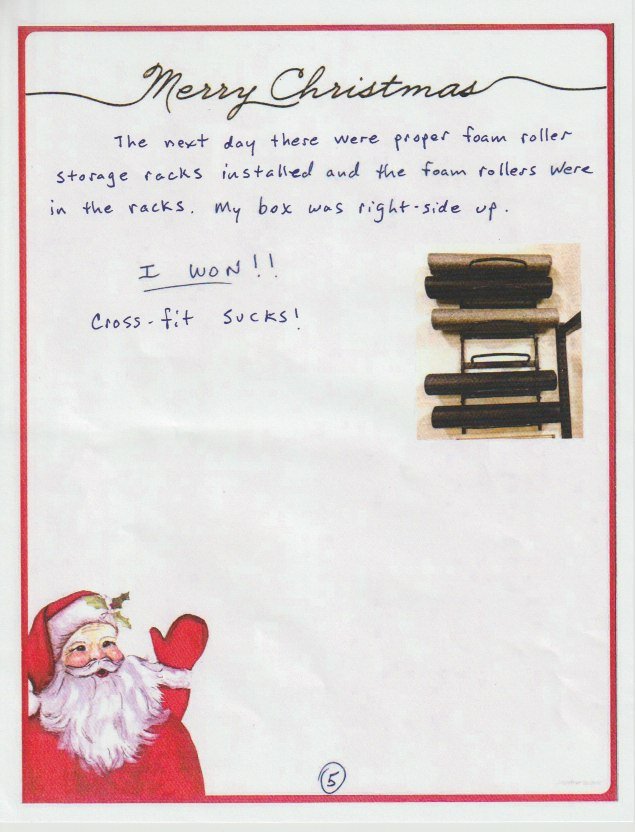 Merry Christmas
The next day there were proper foam roller
storage racks installed and the foam rollers were
in the racks. My box was right-side up.
I WON!!
Cross-fit SUCKS!
5